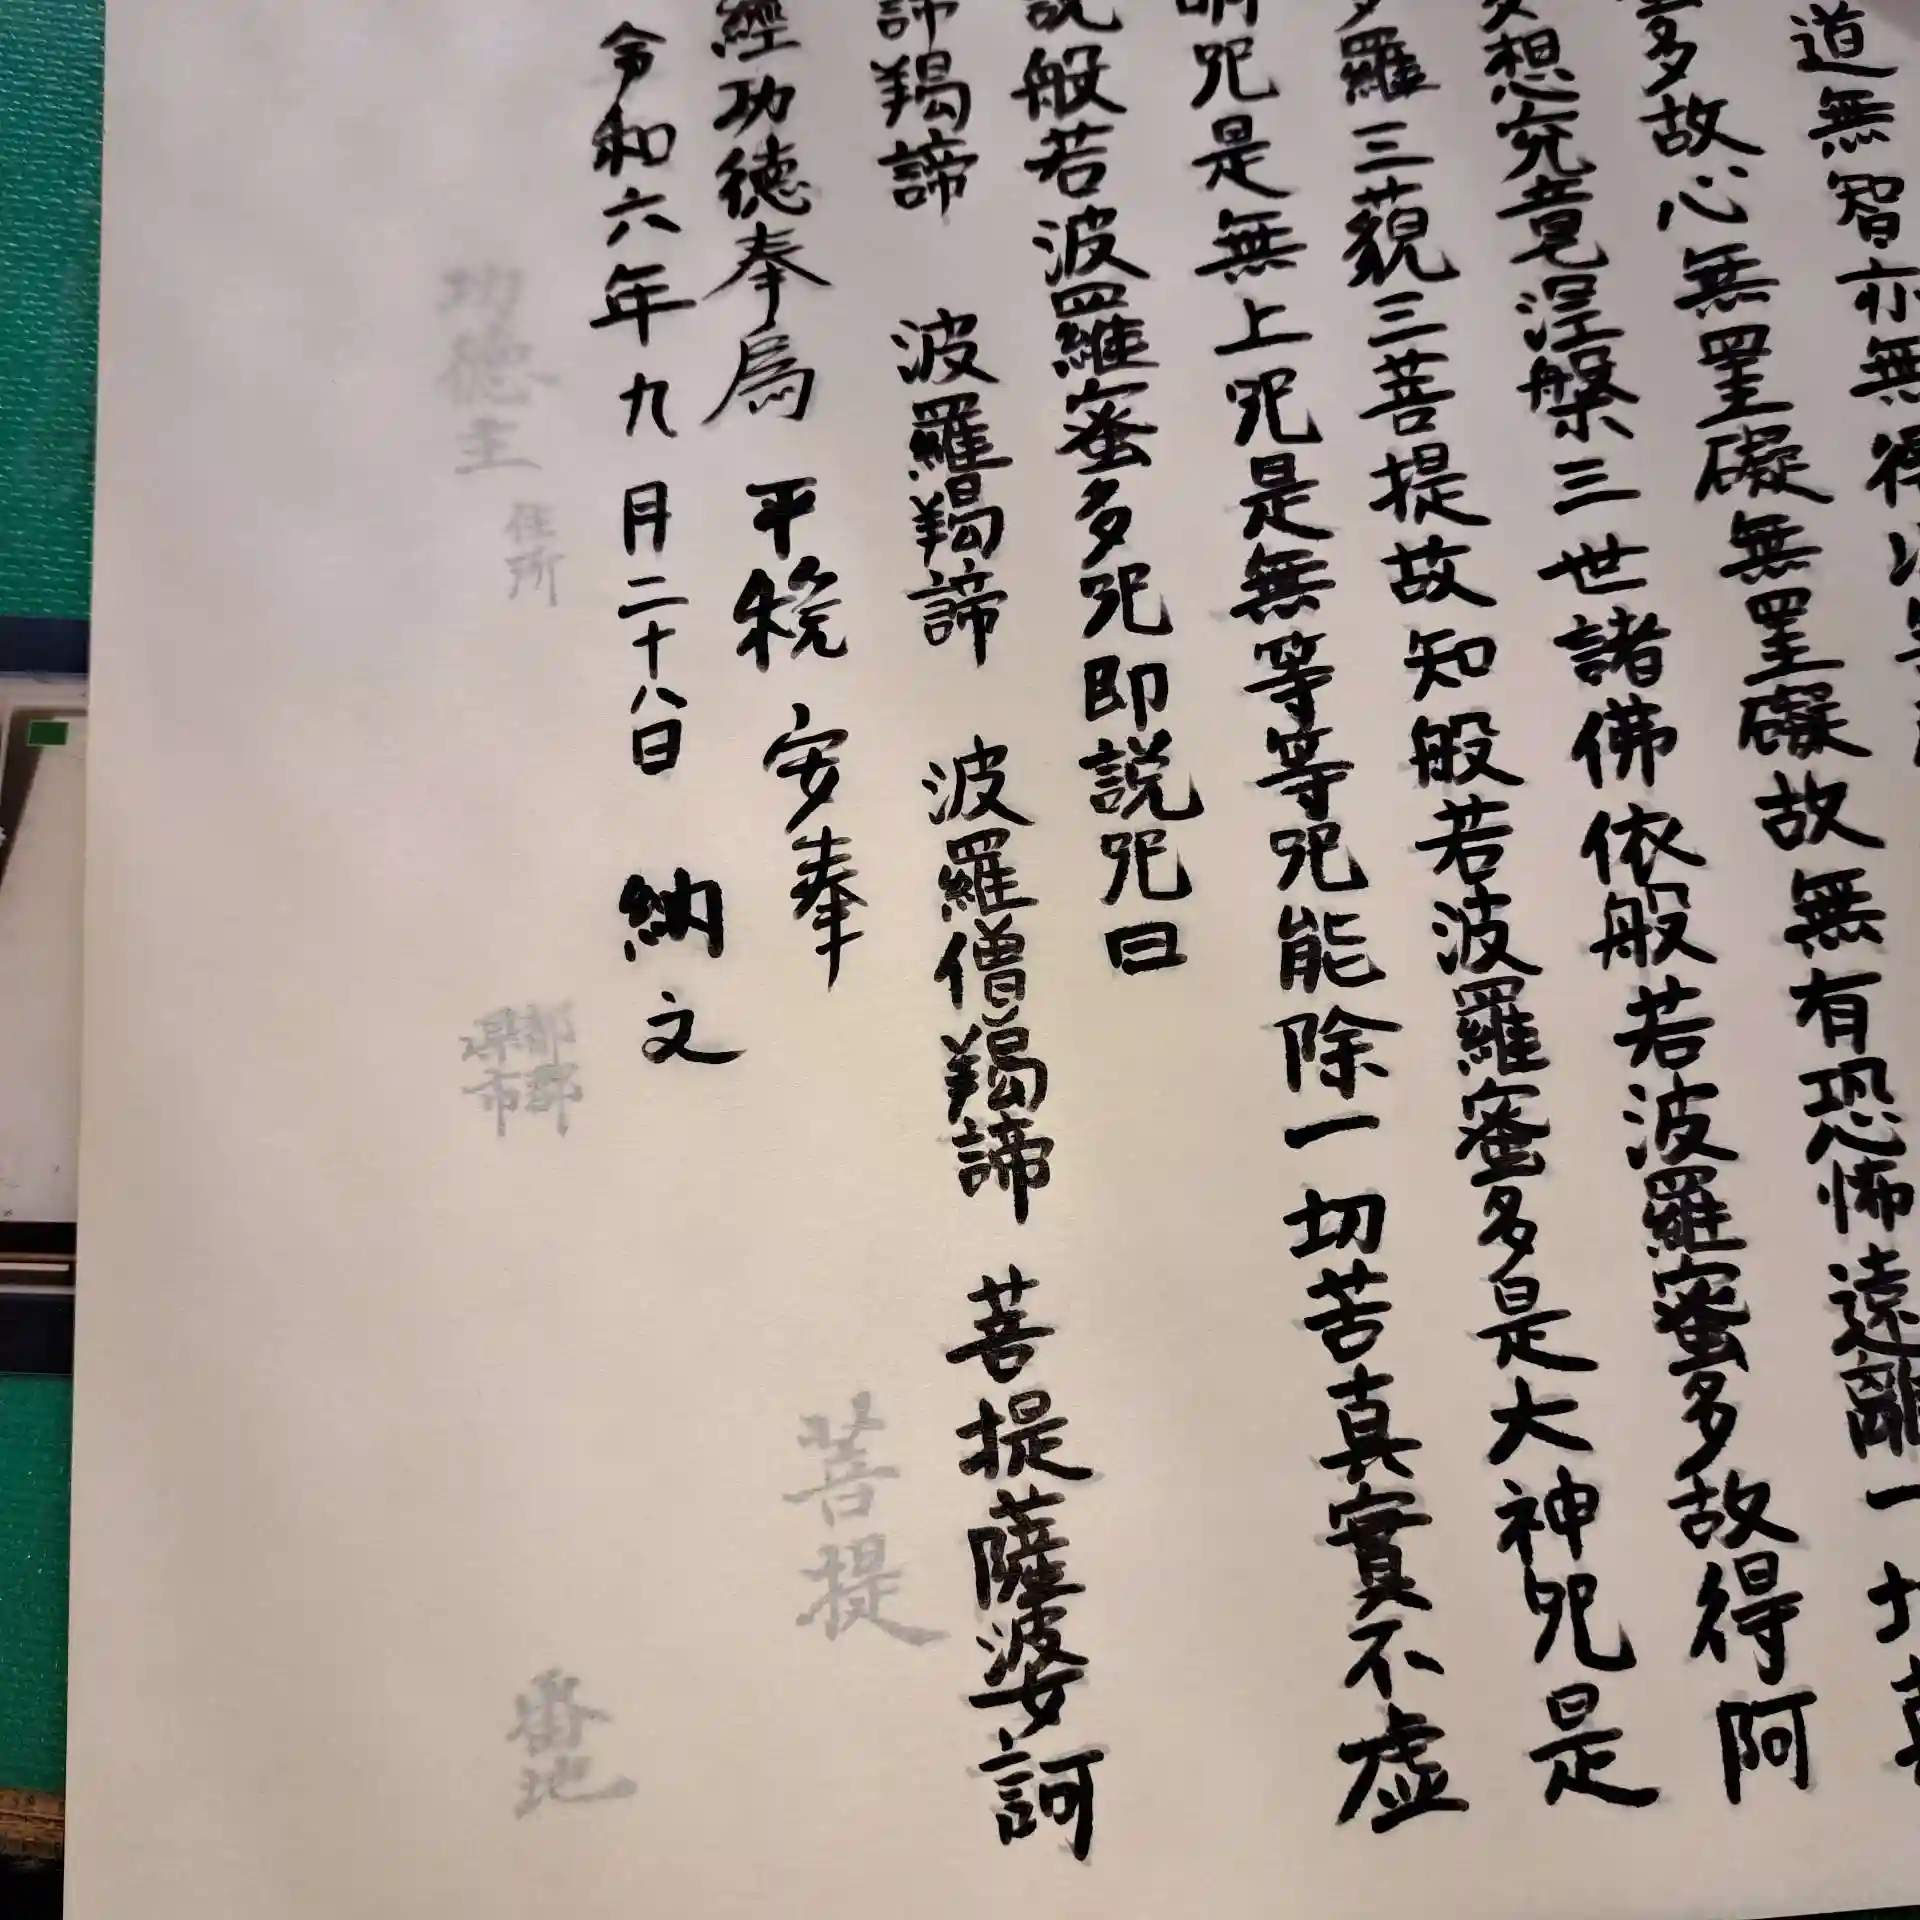 道無智亦無得
多故心無罣礙無罣礙故無有恐怖遠離一切
想究竟涅槃三世諸佛依般若波羅蜜多故得阿
多羅三藐三菩提故知般若波羅蜜多是大神咒是
明咒是無上咒是無等等咒能除一切苦真實不虚
説般若波羅蜜多咒即説咒曰
諦羯諦 波羅羯諦 波羅僧羯諦 菩提薩婆訶
經功徳奉為 平 安奉
菩提
令和六年九月二十八日 納文
功徳主 住所
都郡
県市
番地